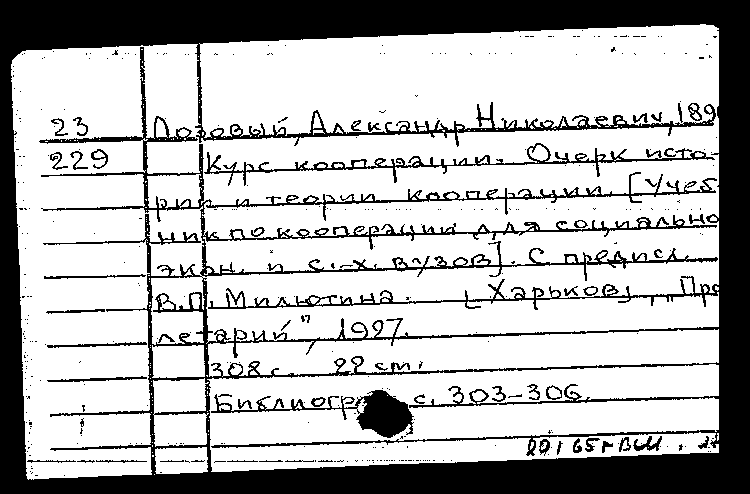 23 Лозовый, Александр Николаевич, 189
229 Курс кооперации. Очерк исто-
рии и теории кооперации. [Учеб-
ник по кооперации для социально
экон. и с.-х. вузов]. С предисл.
В.П. Милютина. [Харьков], „Про
летарий", 1927.
308 с. 22 cm.
Библиогр с. 303-306.